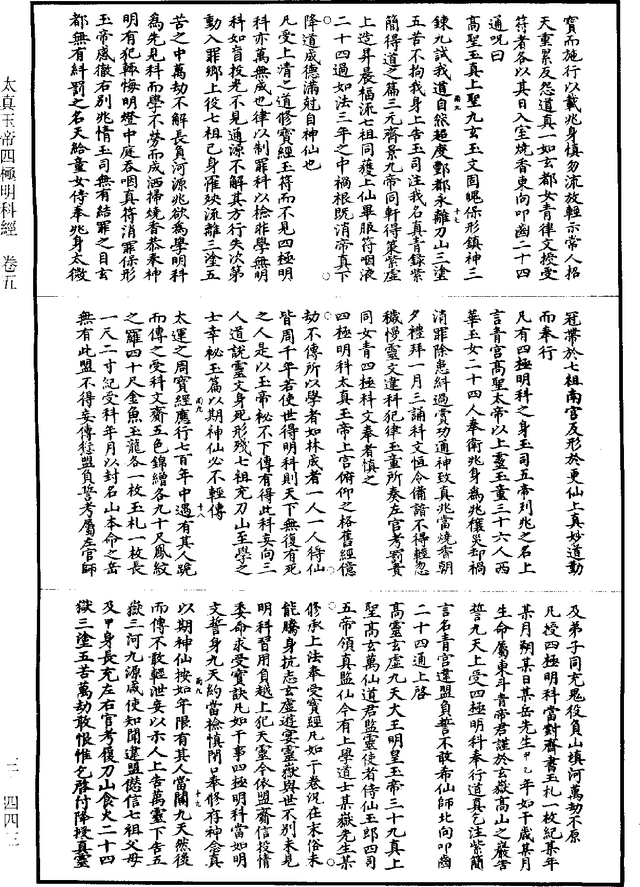 寶而施行以戴兆身慎勿流放輕示常人招
天重累反怨道真一如玄都女青律文授受
符者各以其日入室燒香東向叩齒二十四
通呪曰
高聖玉真上聖九玄玉文固魄保形鎮神三
鍊九試我道自然超度酆都永離刀山三塗
五苦不拘我身上告玉司注我名真青錄紫
簡得道之篇三元齋景九帝同軒得策紫虛
上造昇晨福流七祖同獲上仙畢服符咽液
二十四過如法三年之中禍根既消帝真下
降道成德滿剋自神仙也
凡受上清之道修寶經玉符而不見四極明
科亦萬無成也律以制罪科以檢非學無明
科如盲投光不見通源不解其方行失次第
動入罪鄉上役七祖已身罹殃流離三塗五
苦之中萬劫不解長負河源兆欲為學明科
為先見科而學不勞而成洒掃燒香恭禮神
明有犯輒悔明燈中庭吞咽真符消罪保形
玉帝感徹右別兆情玉司無有結罪之目玄
都無有糾罰之名天給童女侍奉兆身太微
冠帶於七祖南宮反形於更仙上真妙道勤
而奉行
凡有四極明科之身玉司五帝列兆之名上
言青宮高聖太帝以上靈玉童三十六人西
華玉女二十四人奉衛兆身為兆禳災却禍
消罪除患糾過賞功通神致真兆當燒香朝
夕禮拜一月三誦科文恒令備諳不得輕忽
穢慢靈文違科犯律玉童所奏左官考罰責
同女青四極科文奉者慎之
四極明科太真玉帝上宮俯仰之格舊經億
劫不傳所以學者如林成者一人一人得仙
皆周千年若使世得明科則天下無復有死
之人是以玉帝祕不下傳有得此科妄向三
人道說靈文身死形殘七祖充刀山至學之
士幸祕玉篇以期神仙必不輕傳
太運之周寶經應行七百年中遇有其人跪
而傳之受科文齋五色錦繒各九十尺鳳紋
之羅四十尺金魚玉龍各一枚玉札一枚長
一尺二寸紀受科年月以封名山本命之岳
無有此盟不得妄傳愆盟負誓考屬左官師
及弟子同充鬼役負山填河萬劫不原
凡授四極明科當對齊書玉札一枚紀某年
某月朔某日某岳先生甲乙年如干歲某月
生命屬東斗青帝君謹於玄嶽高山之巖告
誓九天上受四極明科奉行道真乞注紫簡
言名青宮違盟負誓不敢希仙師北向叩齒
二十四通上啓
高靈玄虛九天大王明皇玉帝三十九真上
聖高玄萬仙道君監靈使者侍仙玉郎四司
五帝領真監仙今有上學道士某嶽先生某
修承上法奉受寶經凡如干卷況在末俗未
能騰身抗志玄虛遊宴靈嶽與世不別未見
明科習用負越上犯天靈今依盟齋信投情
委命求受寶訣凡如干事四極明科當如明
文誓身九天約當檢慎閉口奉修存神念真
以期神仙按如年限有其人當關九天然後
而傳不敢輕泄妄以示人上告萬靈下告五
嶽三河九源咸使知聞違盟愆信七祖父母
及甲身長充左右官考復刀山食火二十四
獄三塗五苦萬劫敢恨惟乞啓付降授真靈
太真玉帝四極明科經　卷五
三—四四三